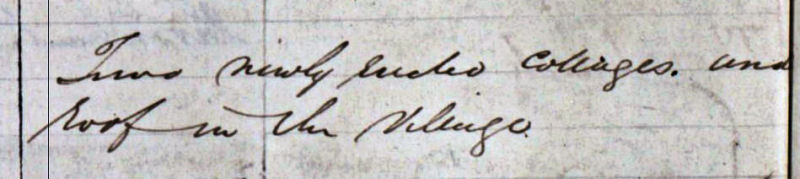 Two newly erected Cottages. and
roof in the Village